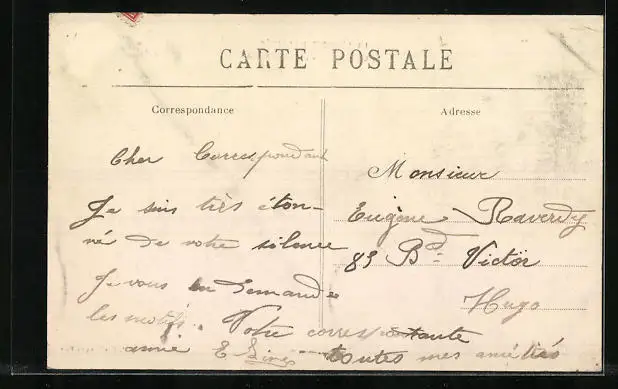 CARTE POSTALE
Correspondance
Cher Correspondant
Je suis très éton-
né de votre silence
Je vous en demande
les motifs. Votre correspondante
amie E toutes mes amitiés
Adresse
Monsieur
Eugène Raverdy
83 Bd Victor
Hugo